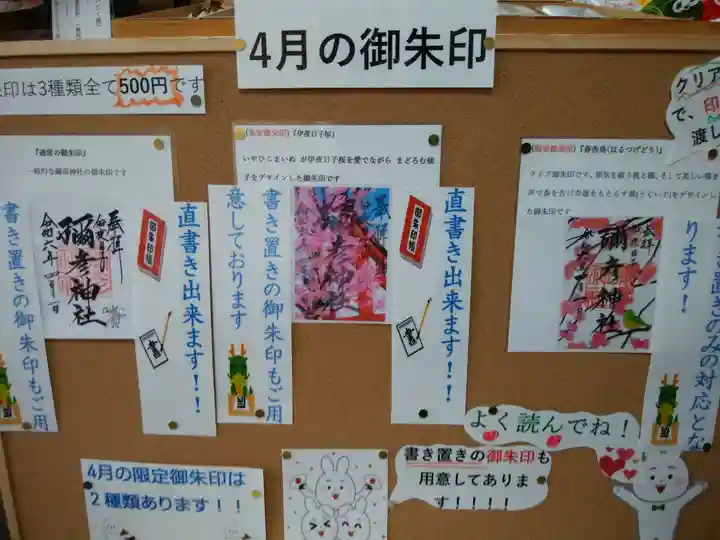 4月の御朱印
朱印は3種類全て500円です
クリア
で、印
渡し
『通常の御朱印』
一般的な彌彦神社の御朱印です
奉拝
彌彦神社
令和六年四月一日
書き置きの御朱印もご用
御朱印帳
直書き出来ます!!
書
『伊夜日子桜』
いやひこまいぬ が伊夜日子桜を愛でながら まどろむ様
子をデザインした御朱印です
書き置きの御朱印もご用
意しております
奉拝
彌彦神社
御朱印帳
直書き出来ます!!
書
『春告鳥(はるつげどり)』
をデザインし
た御朱印です
奉拝
彌彦神社
き置きのみの対応とな
ります!
よく読んでね!
4月の限定御朱印は
2種類あります!!
書き置きの御朱印も
用意してありま
す!!!!